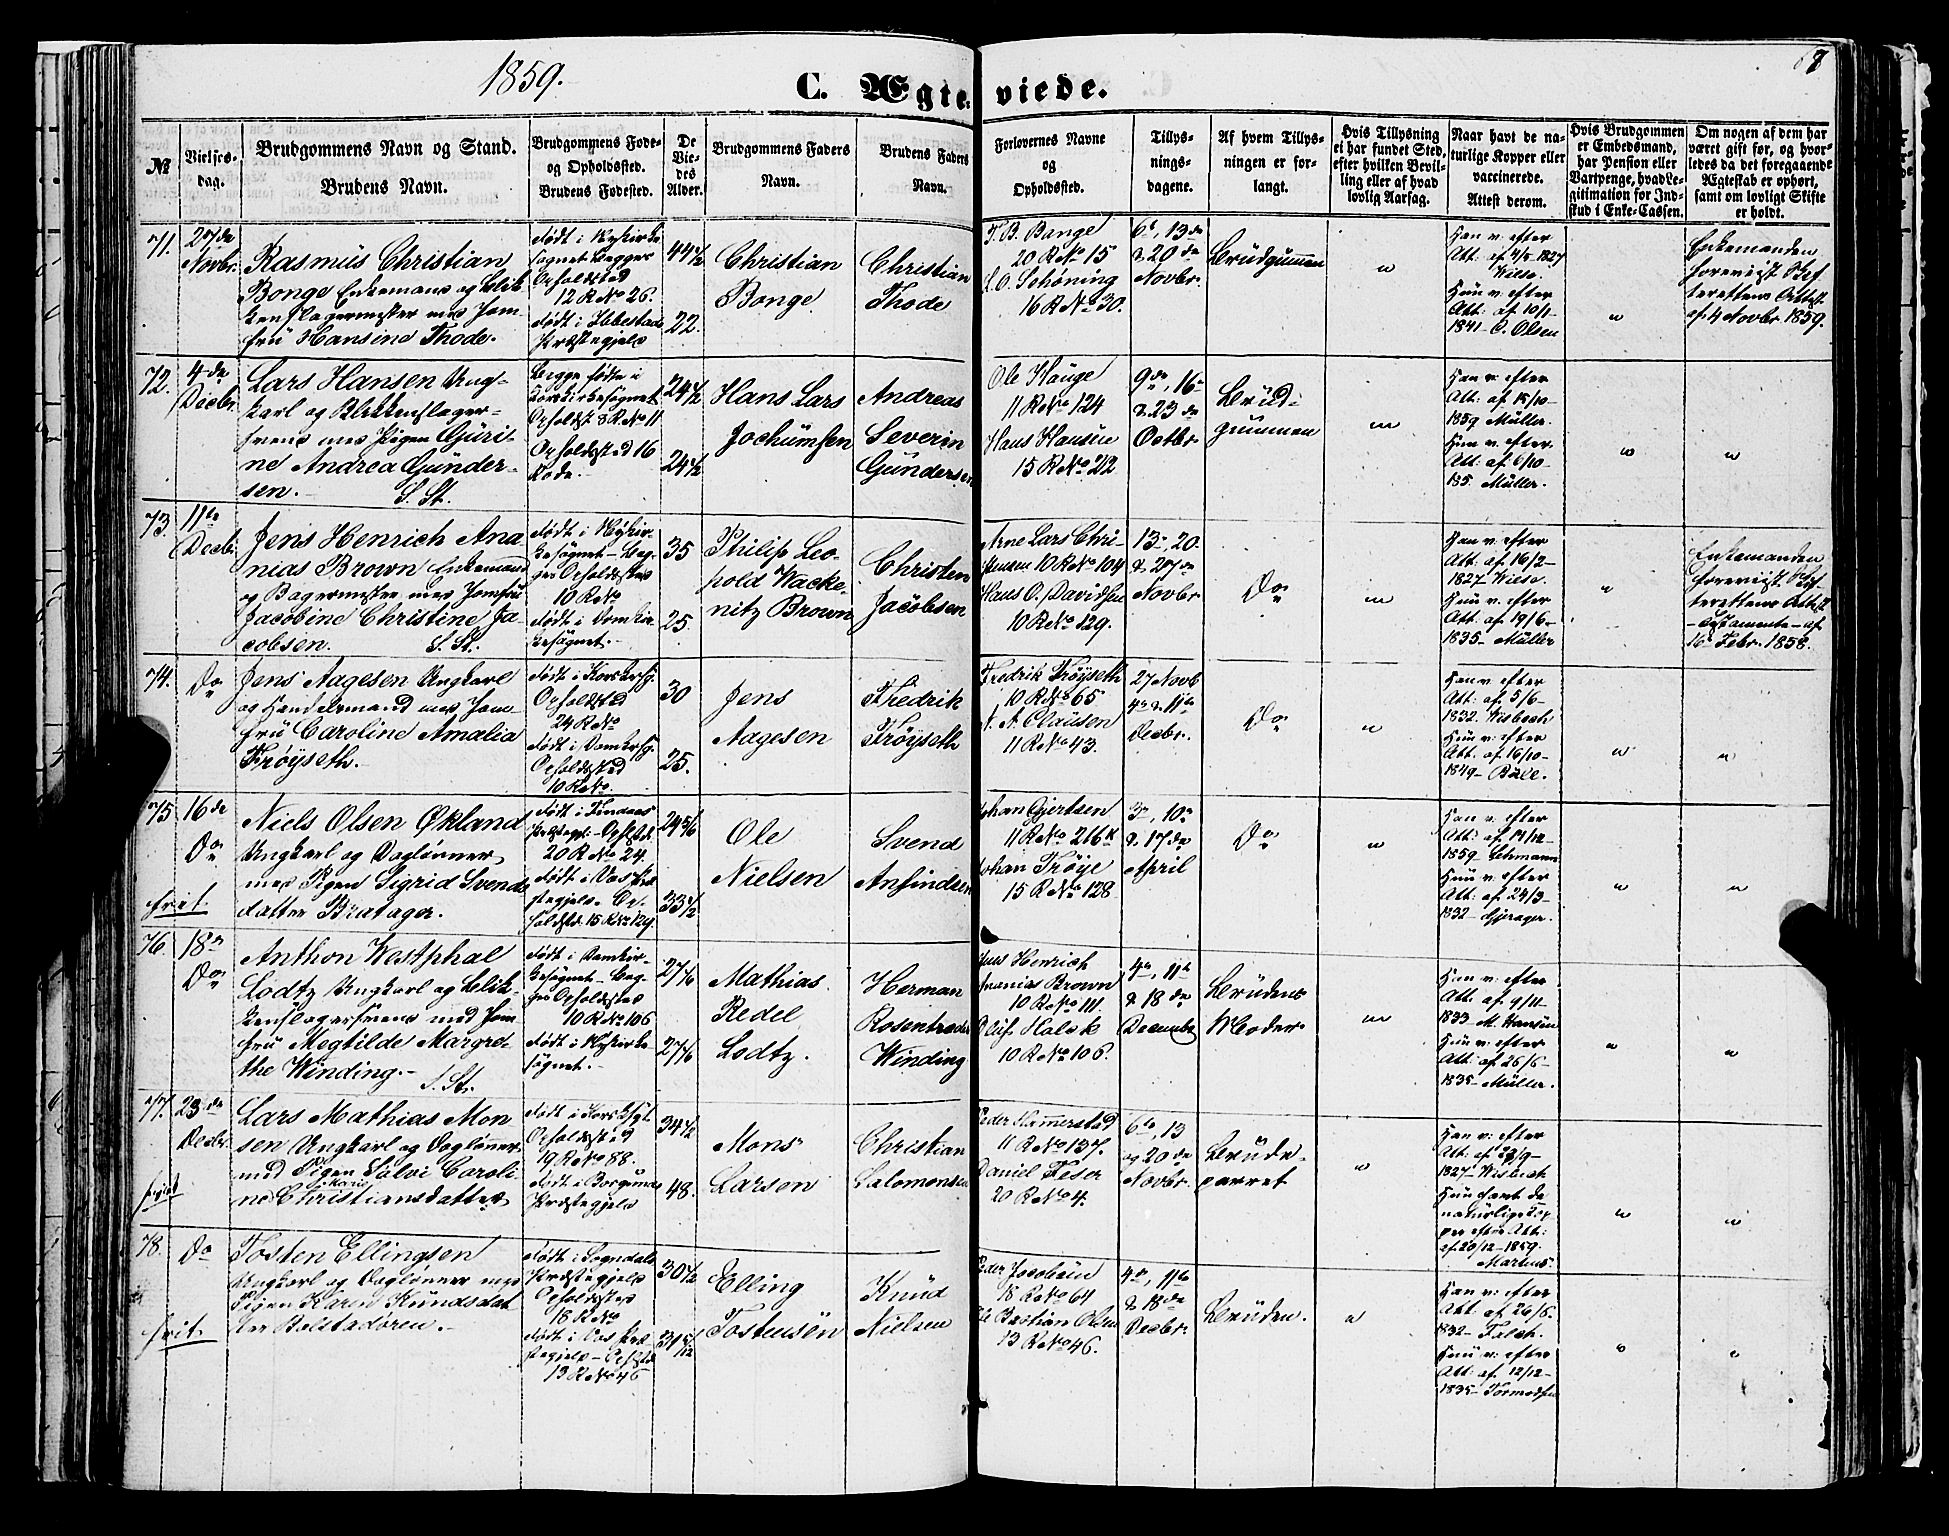 1859.
C. Ægteviede.
67
No
Vielses-
dag.
Brudgommens Navn og Stand.
Brudens Navn.
Brudgommens Føde-
og Opholdssted.
Brudens Fødested.
De
Vie-
des
Alder.
Brudgommens Faders
Navn.
Brudens Faders
Navn.
Forlovernes Navne
og
Opholdssted.
Tillys-
nings-
dagene.
Af hvem Tillys-
ningen er for-
langt.
Hvis Tillysning
ei har fundet Sted,
efter hvilken Bevil-
ling eller af hvad
lovlig Aarsag.
Naar havt de na-
turlige Kopper eller
vaccinerede.
Attest derom.
Hvis Brudgommen
er Embedsmand,
har Pension eller
Vartpenge, hvad Le-
gitimation for Ind-
skud i Enke-Cassen.
Om nogen af dem har
været gift før, og hvor-
ledes da det foregaaende
Ægteskab er ophørt,
samt om lovligt Skifte
er holdt.
71.
27de
Novbr.
Rasmus Christian
Bonge Enkemand og Blik-
kenslagermester med Jom-
fru Hansine Thode.
født i Nykirke
sognet begges
Opholdsted
12 R No 26.
født i Ibbestad
Præstegjeld
44½
22.
Christian
Bonge
Christian
Thode
T. B. Bange
20 R No 15
L. O. Schöning
16 R No 30.
6te, 13de
& 20de
Novbr.
Brudgummen
"
Han v. efter
Att. af 4/5 1827
Wiese.
Hun v. efter
Att: af 10/1-
1841- C. Olsen
"
Enkemanden
foreviist Skif
terettens Attest
af 4 Novbr. 1859.
72.
4de
Decbr.
Lars Hansen Ung-
karl og Blikkenslager-
svend med Pigen Gúri-
ne Andrea Gúnder-
sen.- S. St.
begge fødte i
Korskirkesognet
Opholdst 8 R No 11
Opholdsted 16
Rode.
24½
24½
Hans Lars
Jochúmsen
Andreas
Severin
Gúndersen
Ole Hauge
11 R No 124
Hans Hansen
15 R No 212
9de, 16-
& 23de
Octbr
Brud-
gummen
"
Han v: efter
Att: af 15/10-
1859 Müller.
Hun v: efter.
Att: af 6/10-
185. Müller.
"
"
73.
11te
Decbr.
Jens Henrich Ana
nias Brown Enkemand
og Bagermester med Jomfru
Jacobine Christine Ja-
cobsen. S. St.
født i Nykir-
kesognet- beg-
ges Opholdsted
10 R No
født i Domkir-
kesognet.-
35
25.
Philip Leo-
pold Wacke-
nitz Brown
Christen
Jacobsen
Arne Lars Chri-
stensen 10 R No 104
Hans O. Davidsen
10 R No 129.
13-, 20-
& 27de
Novbr
Do
"
Han v. efter
Att. af 16/2-
1827- Wiese.
Hun v. efter
Att. af 19/6-
1835- Müller
"
Enkemanden
foreviist Skif
terettens Attest
- af
16 Febr. 1858.
74.
Do
Jens Aagesen Ungkarl
og Handelsmand med Jom
fru Caroline Amalia
Frøÿseth.-
født i Korskirksg.
Opholdsted
24 R No
født i Domkirksg.
Opholdsted
10 R No.
30
25.
Jens
Aagesen
Fredrik
Frøÿseth
Fredrik Frøÿseth
10 R No 65
N. A. Clausen
11 R No 43.
27 Novb
4de & 11te
Decbr.
Do
"
Han v. efter
Att: af 5/6-
1832. Wisbech
Hun v. efter
Att: af 16/10-
1849-
"
"
75
16de
Do
frit.
Niels Olsen Økland
Ungkarl og Daglønner
med Pigen Sigrid Svends
datter Bratager.
født i Findaas
Præstegj.- Opholdst.
20 R No 24.
født i Vos Præ
stegjeld. Op-
holdstd. 15 R No 129.
24 5/6
33½
Ole
Nielsen
Svend
Anfindsen
Johan Gjertsen
11 R No 216 k
Johan Frøÿe
15 R No 128
3de, 10de
& 17de
April
Do
"
Han v. efter
Att: af 14/12-
1859- Lehmann
Hun v: efter
Att: af 24/3-
1832- Gjerager.
"
"
76.
18de
Do
Anthon Westphal
Lodtz Ungkarl og Blik-
kenslagersvend med Jom
fru Megtilde Margre-
the Winding.- S. St.
født i Domkir-
kesognet- beg-
ges Opholdsted
10 R No 106
født i Nykirke
sognet.-
27 1/6
27 1/6
Mathias
Redel
Lodtz.
Herman
Rosentreder
Winding
Jens Henrich
Ananias Brown
10 R No 111.
Oluf Halck
10 R No 106.
4de, 11te
& 18de
Decembr
Brudens
Moder
"
Han v: efter
Att. af 9/11-
1833- M. Hansen
Hun v. efter
Att: af 26/6-
1835- Müller.
"
"
77.
23de
Decbr.
Lars Mathias Mon
sen Ungkarl og Daglønner
med Pigen Sølvi Caroli-
ne Christiansdatter
født i Korskksgt.
Opholdsted
19 R No 88.
født i Borgunds
Præstegjeld
34½
48.
Mons
Larsen
Christian
Salomonsen
Peder Hammerstad
11 R No 137.
Daniel Feser
20 R No 4.
6te, 13
og 20de
Novbr.
Brude-
parret
"
Han v: efter
Att: af 22/9-
1827- Wisbech
Hun havt de
naturlige Kop
per efter Att:
af 20/12-1859.
Martens.
"
"
78.
Do
frit.
Tosten Ellingsen
Ungkarl og Daglønner med
Pigen Karen Knúdsdat
ter Bolstadøren.-
født i Sogndals
Præstegjeld
Opholdsted
18 R No
født i Vos Præ
stegjeld- Opholdsted
13 R No 46
30½
31 5/12
Elling
Tostensen
Knúd
Nielsen
Peder Jacobsen
18 R No 64
Ole Bastian Olsen
13 R No 46.
4de, 11te
& 18de
Decbr.
Bruden.
"
Han v: efter
Att: af 26/6-
1832- Falch.
Hun v: efter
Att: af 12/12-
1835- Tormodsen
"
"